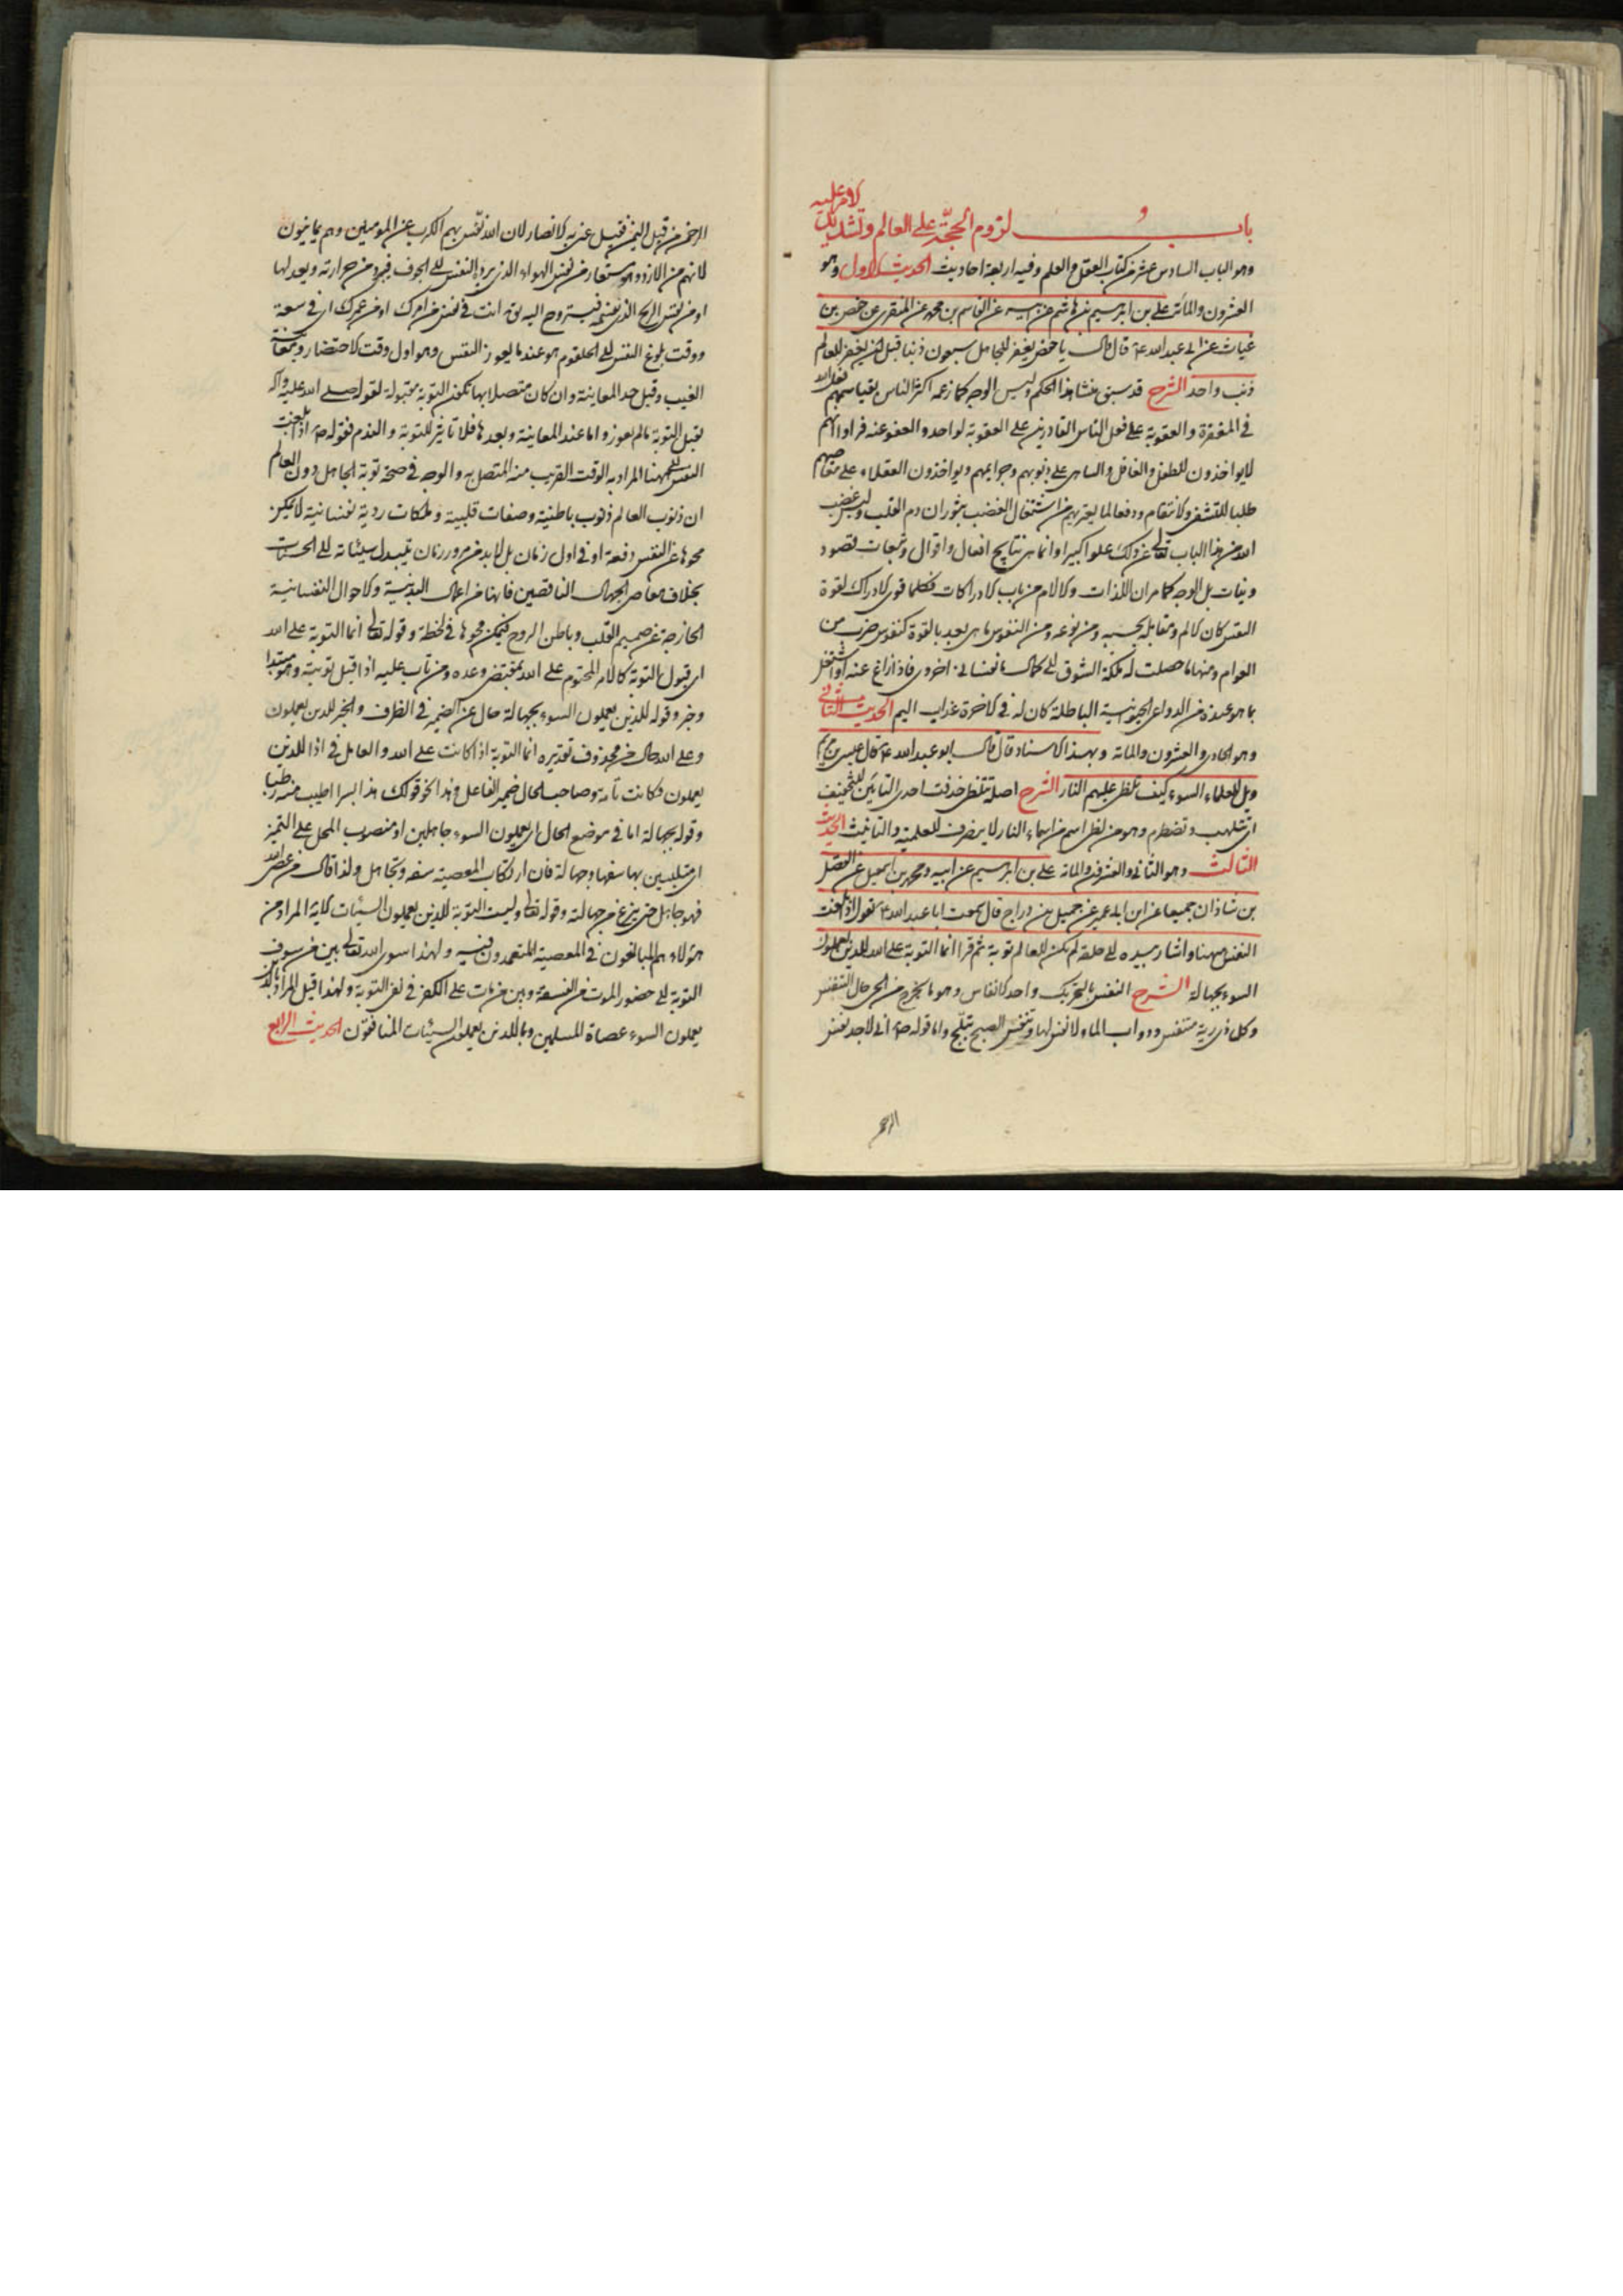 باب لزوم الحجة على العالم وتشديد الامر عليه
وهو الباب السادس عشر من كتاب العقل والعلم وفيه اربعة احاديث الحديث الاول وهو
العشرون والمائة على بن ابرهيم بن هاشم عن ابيه عن القاسم بن محمد عن المنقرى عن حفص بن
غياث عن ابى عبد الله ع قال قال يا حفص يغفر للجاهل سبعون ذنبا قبل ان يغفر للعالم
ذنب واحد الشرح قد سبق منشا هذا الحكم وليس الوجه كما زعمه اكثر الناس بقياسهم فعل الله
فى المغفرة والعقوبة على فعل الناس القادرين على العقوبة لواحد والعفو عنه فراوا انهم
لايواخذون الطفل والغافل والساهى على ذنوبهم وجرايمهم ويواخذون العقلاء على معاصيهم
طلبا للتشفى والانتقام ودفعا لما يعتريهم من اشتعال الغضب بثوران دم القلب وليس غضب
الله من هذا الباب تعالى عن ذلك علوا كبيرا وانما هى نتايج افعال واقوال وتبعات قصود
ونيات بل الوجه كما مر ان اللذات والالام من باب الادراكات فكلما قوى الادراك لقوة
النفس كان الالم ومقابله بحسبه ومن نوعه ومن النفوس ما هى بعد بالقوة كنفوس ضرب من
العوام ومنها ما حصلت له ملكة الشوق الى كمال ما نفسانى اخروى فاذا زاغ عنه او اشتغل
بما هو عنده من الدواعى الحيوانية الباطلة كان له فى الاخرة عذاب اليم الحديث الثانى
وهو الحادى والعشرون والمائة وبهذا الاسناد قال قال ابو عبد الله ع قال عيسى بن مريم
ويل للعلماء السوء كيف تلظى عليهم النار الشرح اصله تتلظى حذفت احدى التائين للتخفيف
اى تتلهب وتضطرم وهو من لظى اسم من اسماء النار لا ينصرف للعلمية والتانيث الحديث
الثالث وهو الثانى والعشرون والمائة على بن ابرهيم عن ابيه ومحمد بن اسمعيل عن الفضل
بن شاذان جميعا عن ابن ابى عمير عن جميل بن دراج قال سمعت ابا عبد الله ع يقول اذا بلغت
النفس ههنا واشار بيده الى حلقه لم يكن للعالم توبة ثم قرا انما التوبة على الله للذين يعملون
السوء بجهالة الشرح النفس بالتحريك واحد الانفاس وهو ما يخرج من الحى حال التنفس
وكل ذى رية متنفس ودواب الماء لا نفس لها وتنفس الصبح تبلج واما قوله ص انى لاجد نفس
الرحمن
الرحمن من قبل اليمن فقيل عنى به الانصار لان الله نفس بهم الكرب عن المومنين وهم يمانيون
لانهم من الازد وهو مستعار من نفس الهواء الذى يرده النفس الى الجوف فيبرد من حرارته ويعدلها
او من نفس الريح الذى تنسمه فيستروح اليه يق انت فى نفس من امرك او من عمرك اى فى سعة
ووقت بلوغ النفس الى الحلقوم هو عندما يعوز النفس وهو اول وقت الاحتضار ومعاينة
الغيب وقبل حد المعاينة وان كان متصلا بها تكون التوبة مقبولة لقوله صلى الله عليه واله
تقبل التوبة مالم يعوز واما عند المعاينة وبعدها فلا تاثير للتوبة والندم فقوله ص اذا بلغت
النفس الى ههنا المراد به الوقت القريب منه المتصل به والوجه فى صحة توبة الجاهل دون العالم
ان ذنوب العالم ذنوب باطنية وصفات قلبية وملكات ردية نفسانية لا يمكن
محوها عن النفس دفعة او فى اول زمان بل لابد من مرور زمان يتبدل سيئاته الى الحسنات
بخلاف معاصى الجهال الناقصين فانها من اعمال البدنية والاحوال النفسانية
الخارجة عن صميم القلب وباطن الروح فيمكن محوها فى لحظة وقوله تعالى انما التوبة على الله
اى قبول التوبة كالامر المحتوم على الله بمقتضى وعده ومن تاب عليه اذا قبل توبته وهو مبتدا
وخبر وقوله للذين يعملون السوء بجهالة حال عن الضمير فى الظرف والخبر للذين يعملون
وعلى الله حال من محذوف تقديره انما التوبة اذا كانت على الله والعامل فى اذا للذين
يعملون وكانت تامة وصاحب الحال ضمير الفاعل وهذا نحو قولك هذا بسرا اطيب منه رطبا
وقوله بجهالة اما فى موضع الحال اى يعملون السوء جاهلين او منصوب المحل على التميز
اى متلبسين بها سفها وجهالة فان ارتكاب المعصية سفه وتجاهل ولذا قال من عصى الله
فهو جاهل حتى ينزع عن جهالته وقوله تعالى وليست التوبة للذين يعملون السيئات الاية المراد من
هؤلاء هم المبالغون فى المعصية المتعمدون فيه ولهذا سوى الله تعالى بين من سوف
التوبة الى حضور الموت من الفسقة وبين من مات على الكفر فى نفى التوبة ولهذا قيل المراد بالذين
يعملون السوء عصاة المسلمين وبالذين يعملون السيئات المنافقون الحديث الرابع